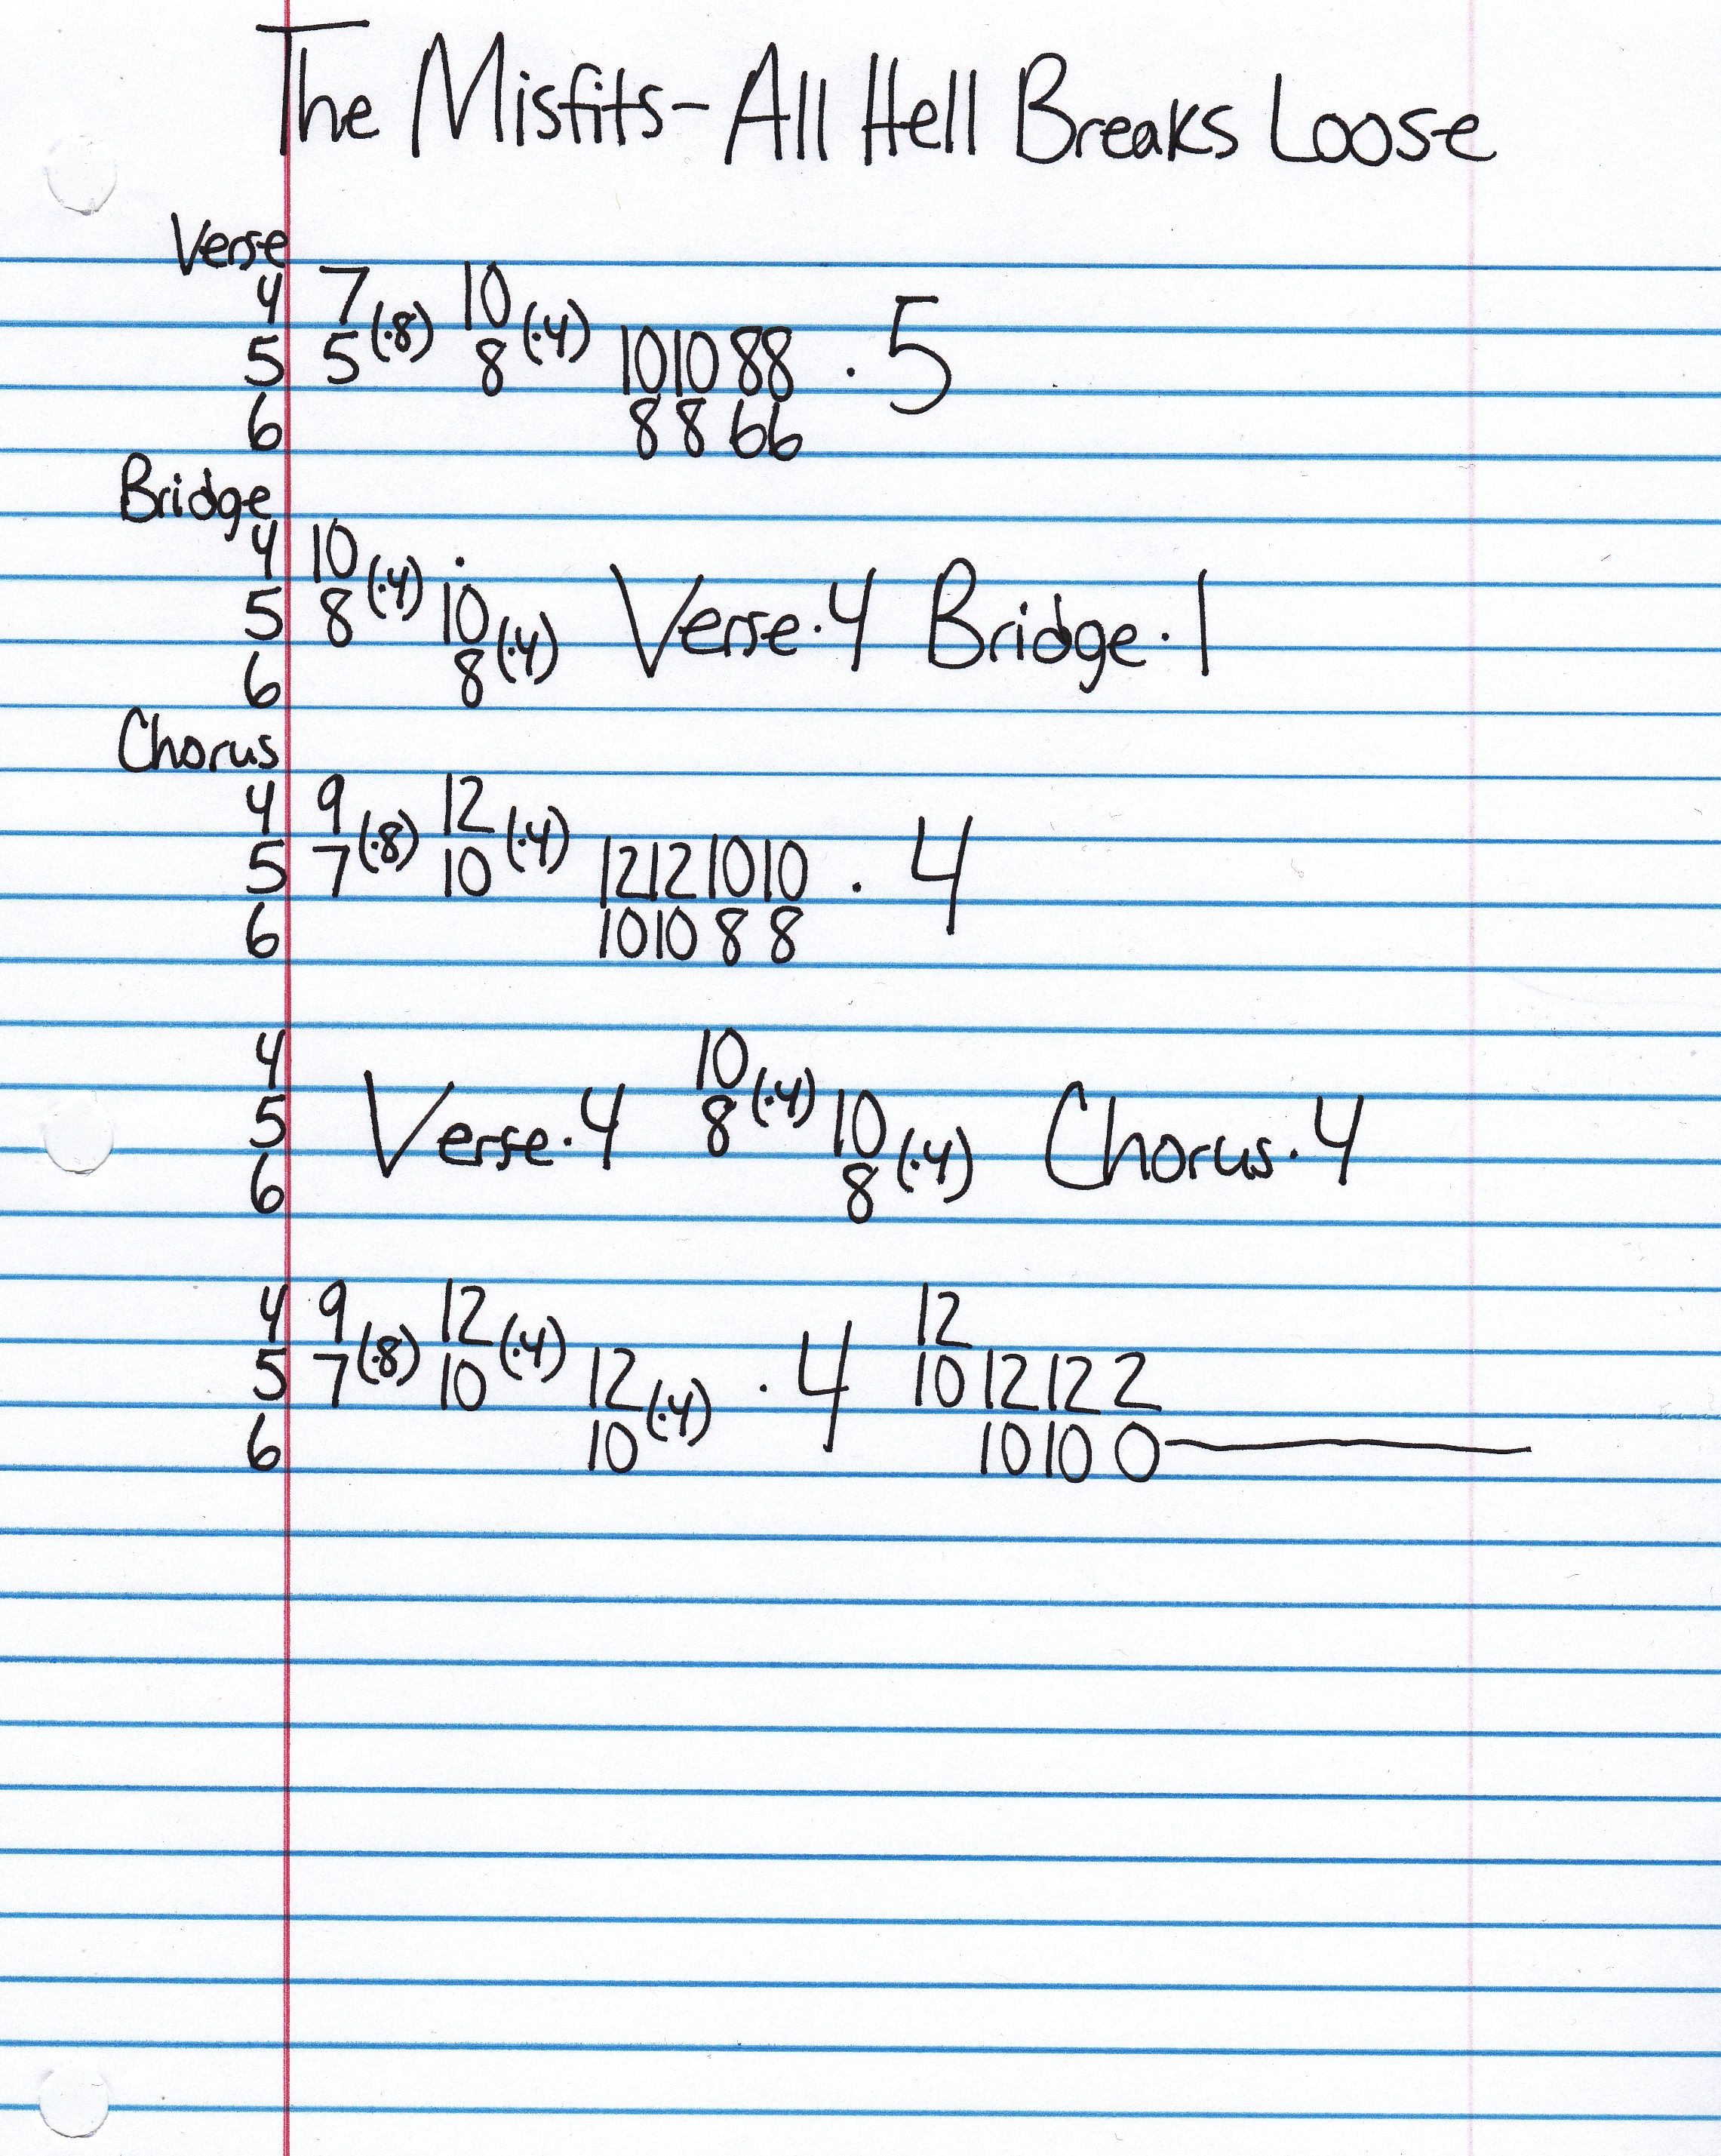 The Misfits - All Hell Breaks Loose
Verse
4 7 (·8) 10 (·4)
5 5 8 10 10 8 8 · 5
6 8 8 6 6
Bridge
4 10 (·4) ·
5 8 10 (·4) Verse·4 Bridge·1
6 8
Chorus
4 9 (·8) 12 (·4)
5 7 10 12 12 10 10 · 4
6 10 10 8 8
4 10 (·4)
5 Verse·4 8 10 (·4) Chorus·4
6 8
4 9 (·8) 12 (·4) 12
5 7 10 12 (·4) · 4 10 12 12 2
6 10 10 10 0